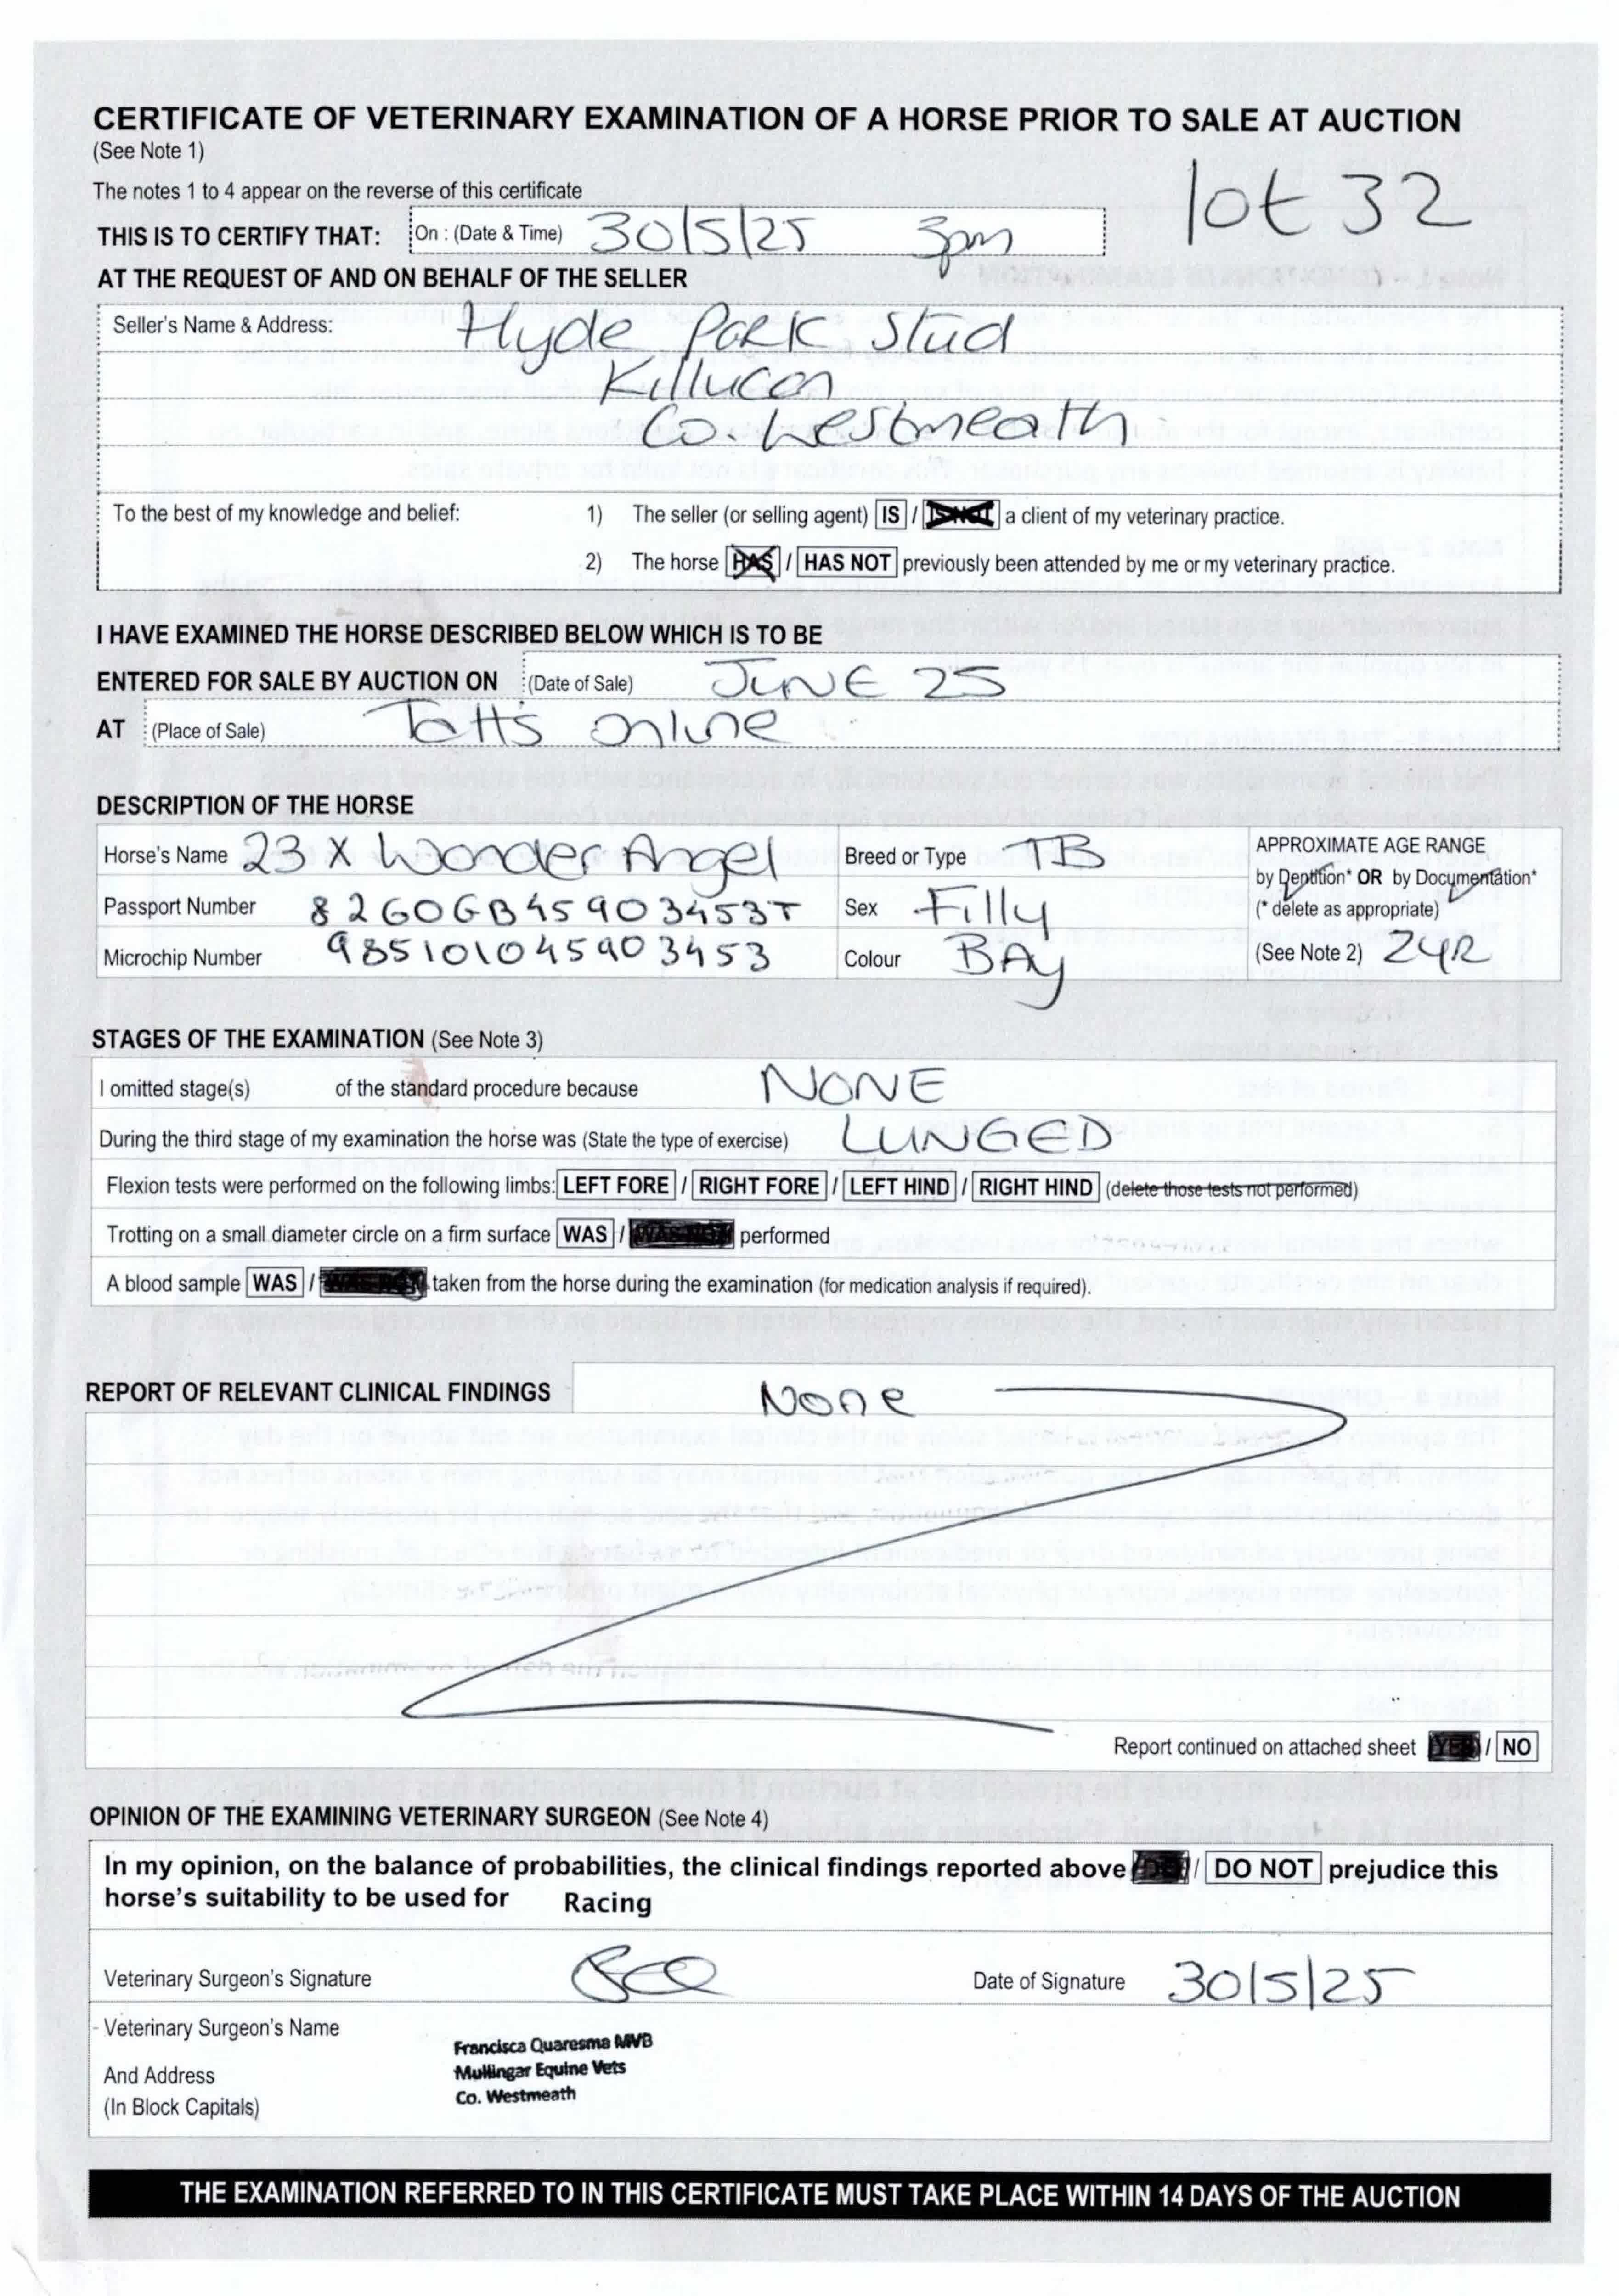 CERTIFICATE OF VETERINARY EXAMINATION OF A HORSE PRIOR TO SALE AT AUCTION
(See Note 1)
lot 32
The notes 1 to 4 appear on the reverse of this certificate
THIS IS TO CERTIFY THAT: On : (Date & Time) 30/5/25 3pm
AT THE REQUEST OF AND ON BEHALF OF THE SELLER
Seller's Name & Address: Hyde Park Stud
Killucan
Co. Westmeath
To the best of my knowledge and belief: 1) The seller (or selling agent) IS / IS NOT a client of my veterinary practice.
2) The horse HAS / HAS NOT previously been attended by me or my veterinary practice.
I HAVE EXAMINED THE HORSE DESCRIBED BELOW WHICH IS TO BE
ENTERED FOR SALE BY AUCTION ON (Date of Sale) JUNE 25
AT (Place of Sale) Tatts online
DESCRIPTION OF THE HORSE
Horse's Name 23 X Wonder Angel Breed or Type TB APPROXIMATE AGE RANGE
by Dentition* OR by Documentation*
Passport Number 826GOGB45903453T Sex Filly (* delete as appropriate)
Microchip Number 985101045903453 Colour BAY (See Note 2) 2YR
STAGES OF THE EXAMINATION (See Note 3)
I omitted stage(s) of the standard procedure because NONE
During the third stage of my examination the horse was (State the type of exercise) LUNGED
Flexion tests were performed on the following limbs: LEFT FORE / RIGHT FORE / LEFT HIND / RIGHT HIND (delete those tests not performed)
Trotting on a small diameter circle on a firm surface WAS / WAS NOT performed
A blood sample WAS / WAS NOT taken from the horse during the examination (for medication analysis if required).
REPORT OF RELEVANT CLINICAL FINDINGS None
Report continued on attached sheet YES / NO
OPINION OF THE EXAMINING VETERINARY SURGEON (See Note 4)
In my opinion, on the balance of probabilities, the clinical findings reported above / DO NOT prejudice this
horse's suitability to be used for Racing
Veterinary Surgeon's Signature Date of Signature 30/5/25
Veterinary Surgeon's Name
And Address
(In Block Capitals)
Francisca Quaresma MVB
Mullingar Equine Vets
Co. Westmeath
THE EXAMINATION REFERRED TO IN THIS CERTIFICATE MUST TAKE PLACE WITHIN 14 DAYS OF THE AUCTION